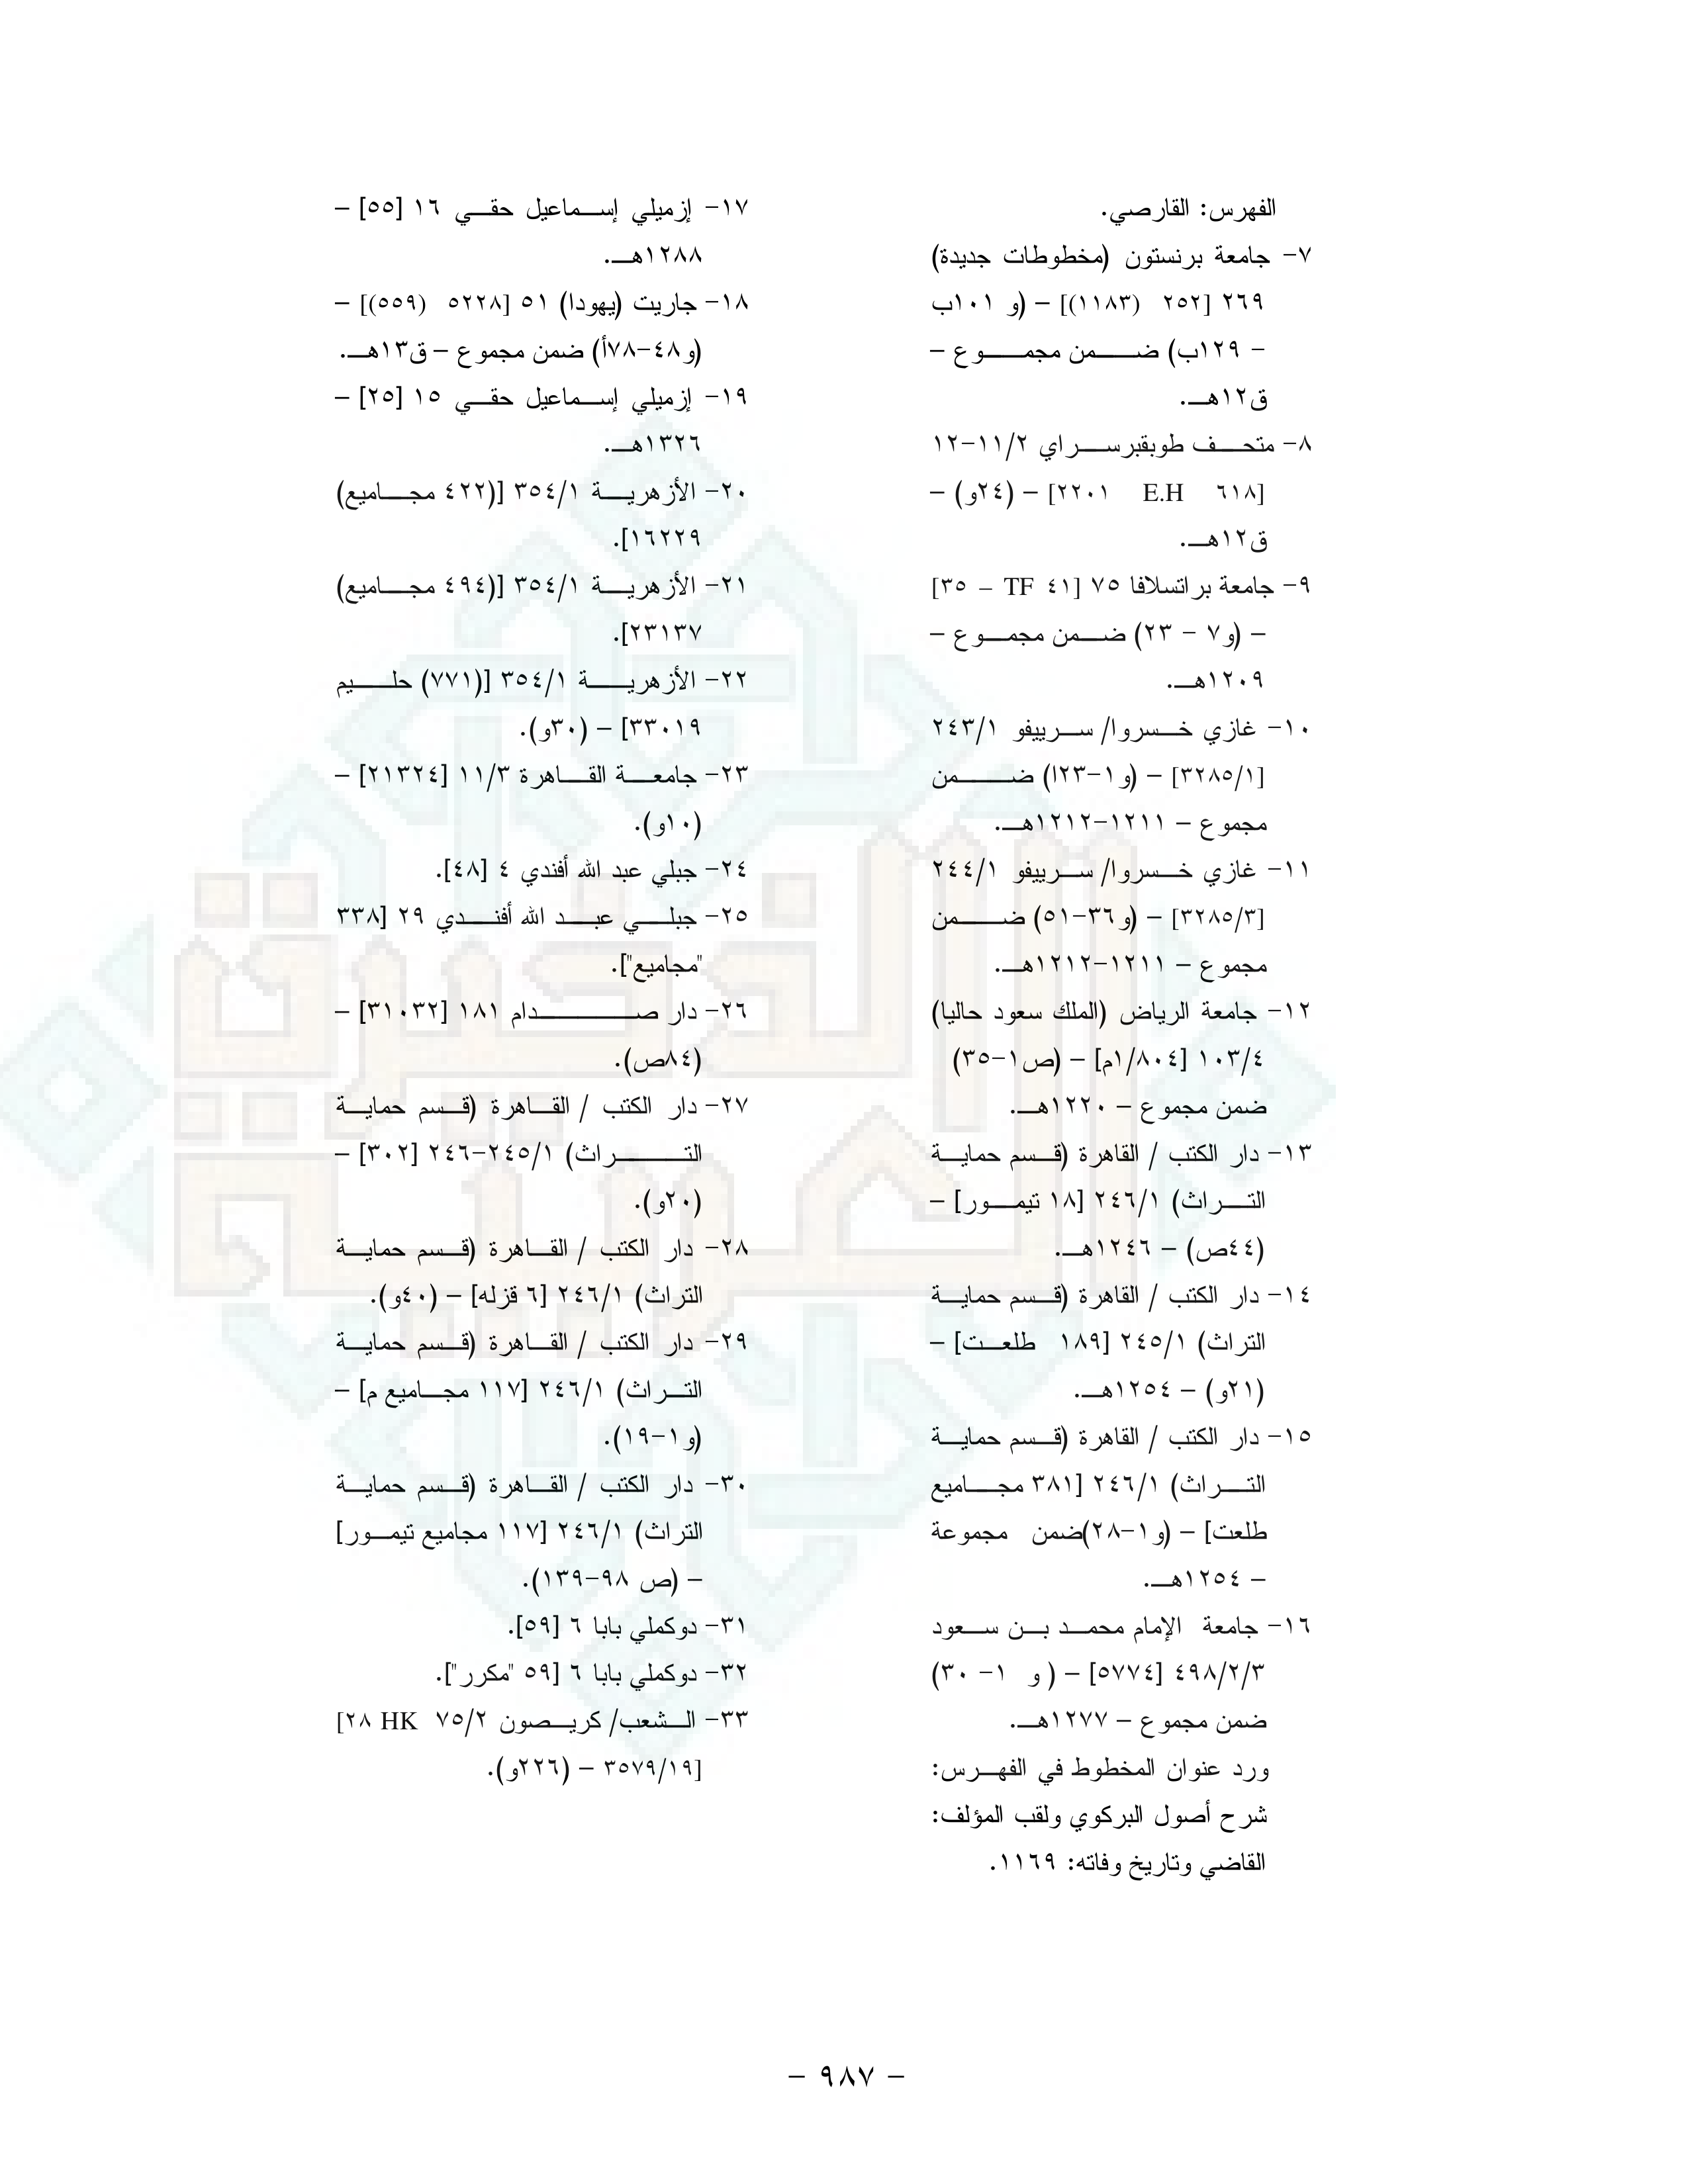 الفهرس: القارصي.
٧- جامعة برنستون (مخطوطات جديدة)
٢٦٩ [٢٥٢ (١١٨٣)] – (و ١٠١ب
- ١٢٩ب) ضمن مجموع –
ق١٢هـ.
٨- متحف طوبقبرسراي ١١/٢-١٢
[٦١٨ E.H ٢٢٠١] – (٢٤و) –
ق١٢هـ.
٩- جامعة براتسلافا ٧٥ [٤١ TF – ٣٥]
– (و٧ - ٢٣) ضمن مجموع –
١٢٠٩هـ.
١٠- غازي خسروا/ سرييفو ٢٤٣/١
[٣٢٨٥/١] – (و١-١٢٣) ضمن
مجموع – ١٢١١-١٢١٢هـ.
١١- غازي خسروا/ سرييفو ٢٤٤/١
[٣٢٨٥/٣] – (و٣٦-٥١) ضمن
مجموع – ١٢١١-١٢١٢هـ.
١٢- جامعة الرياض (الملك سعود حاليا)
١٠٣/٤ [١/٨٠٤م] – (ص١-٣٥)
ضمن مجموع – ١٢٢٠هـ.
١٣- دار الكتب / القاهرة (قسم حماية
التراث) ٢٤٦/١ [١٨ تيمور] –
(٤٤ص) – ١٢٤٦هـ.
١٤- دار الكتب / القاهرة (قسم حماية
التراث) ٢٤٥/١ [١٨٩ طلعت] –
(٢١و) – ١٢٥٤هـ.
١٥- دار الكتب / القاهرة (قسم حماية
التراث) ٢٤٦/١ [٣٨١ مجاميع
طلعت] – (و١-٢٨)ضمن مجموعة
– ١٢٥٤هـ.
١٦- جامعة الإمام محمد بن سعود
٤٩٨/٢/٣ [٥٧٧٤] – ( و ١- ٣٠)
ضمن مجموع – ١٢٧٧هـ.
ورد عنوان المخطوط في الفهرس:
شرح أصول البركوي ولقب المؤلف:
القاضي وتاريخ وفاته: ١١٦٩.
١٧- إزميلي إسماعيل حقي ١٦ [٥٥] –
١٢٨٨هـ.
١٨- جاريت (يهودا) ٥١ [٥٢٢٨ (٥٥٩)] –
(و٤٨-٧٨أ) ضمن مجموع – ق١٣هـ.
١٩- إزميلي إسماعيل حقي ١٥ [٢٥] –
١٣٢٦هـ.
٢٠- الأزهرية ٣٥٤/١ [(٤٢٢ مجاميع)
١٦٢٢٩].
٢١- الأزهرية ٣٥٤/١ [(٤٩٤ مجاميع)
٢٣١٣٧].
٢٢- الأزهرية ٣٥٤/١ [(٧٧١) حليم
٣٣٠١٩] – (٣٠و).
٢٣- جامعة القاهرة ١١/٣ [٢١٣٢٤] –
(١٠و).
٢٤- جبلي عبد الله أفندي ٤ [٤٨].
٢٥- جبلي عبد الله أفندي ٢٩ [٣٣٨
"مجاميع"].
٢٦- دار صدام ١٨١ [٣١٠٣٢] –
(٨٤ص).
٢٧- دار الكتب / القاهرة (قسم حماية
التراث) ٢٤٥/١-٢٤٦ [٣٠٢] –
(٢٠و).
٢٨- دار الكتب / القاهرة (قسم حماية
التراث) ٢٤٦/١ [٦ قزله] – (٤٠و).
٢٩- دار الكتب / القاهرة (قسم حماية
التراث) ٢٤٦/١ [١١٧ مجاميع م] –
(و١-١٩).
٣٠- دار الكتب / القاهرة (قسم حماية
التراث) ٢٤٦/١ [١١٧ مجاميع تيمور]
– (ص ٩٨-١٣٩).
٣١- دوكملي بابا ٦ [٥٩].
٣٢- دوكملي بابا ٦ [٥٩ "مكرر"].
٣٣- الشعب/ كريصون ٧٥/٢ [٢٨ HK
٣٥٧٩/١٩] – (٢٢٦و).
- ٩٨٧ -